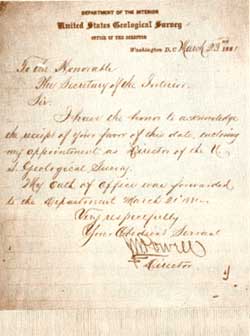 DEPARTMENT OF THE INTERIOR
United States Geological Survey
OFFICE OF THE DIRECTOR
Washington, D.C. March 23rd 1881
To the Honorable
The Secretary of the Interior.
Sir:
I have the honor to acknowledge
the receipt of your favor of this date, enclosing
my appointment as Director of the U.
S. Geological Survey.
My oath of office was forwarded
to the Department March 21st
Very respectfully
Your Obedient Servant
JW Powell
Director